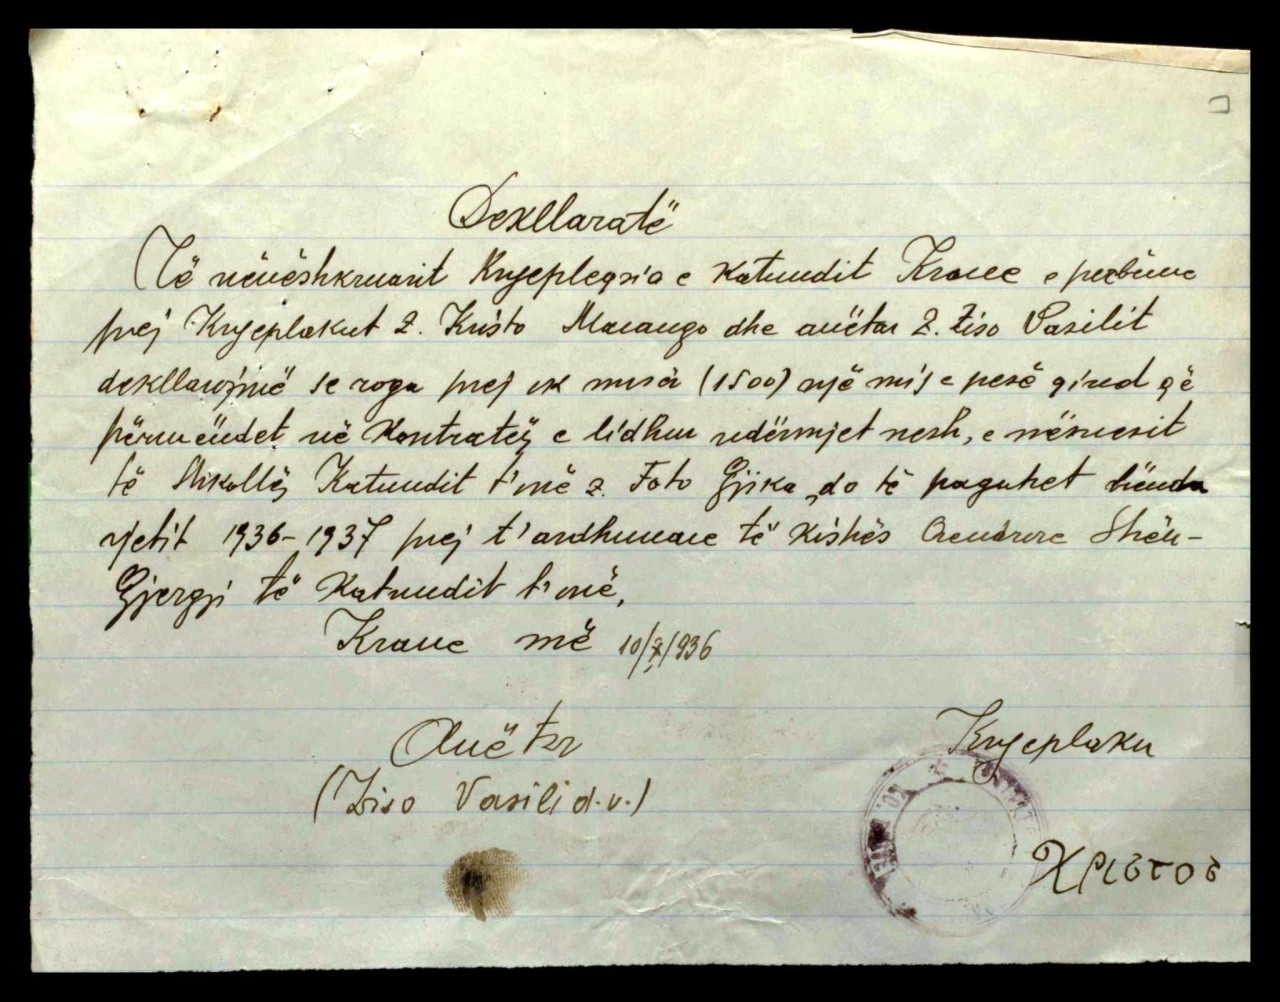 Dekllaratë
Të nënëshkruarit Kryeplegsia e Katundit Krane e përbëme
prej Kryeplakut Z. Kristo Marango dhe anëtar Z. Ziso Vasilit
dekllarojmë se roga prej ok misër (1500) një mij e pesë qind që
përmëndet në Kontratën e lidhun ndërmjet nesh, e mësuesit
të Shkollës Katundit t'onë z. Foto Gjika, do të paguhet brënda
vjetit 1936-1937 prej t'ardhunave të Kishës Shën-
Gjergji të Katundit t'onë,
Krane më 10/X/936
Anëtar
Kryeplaku
(Ziso Vasili d.v.)
Χριστος